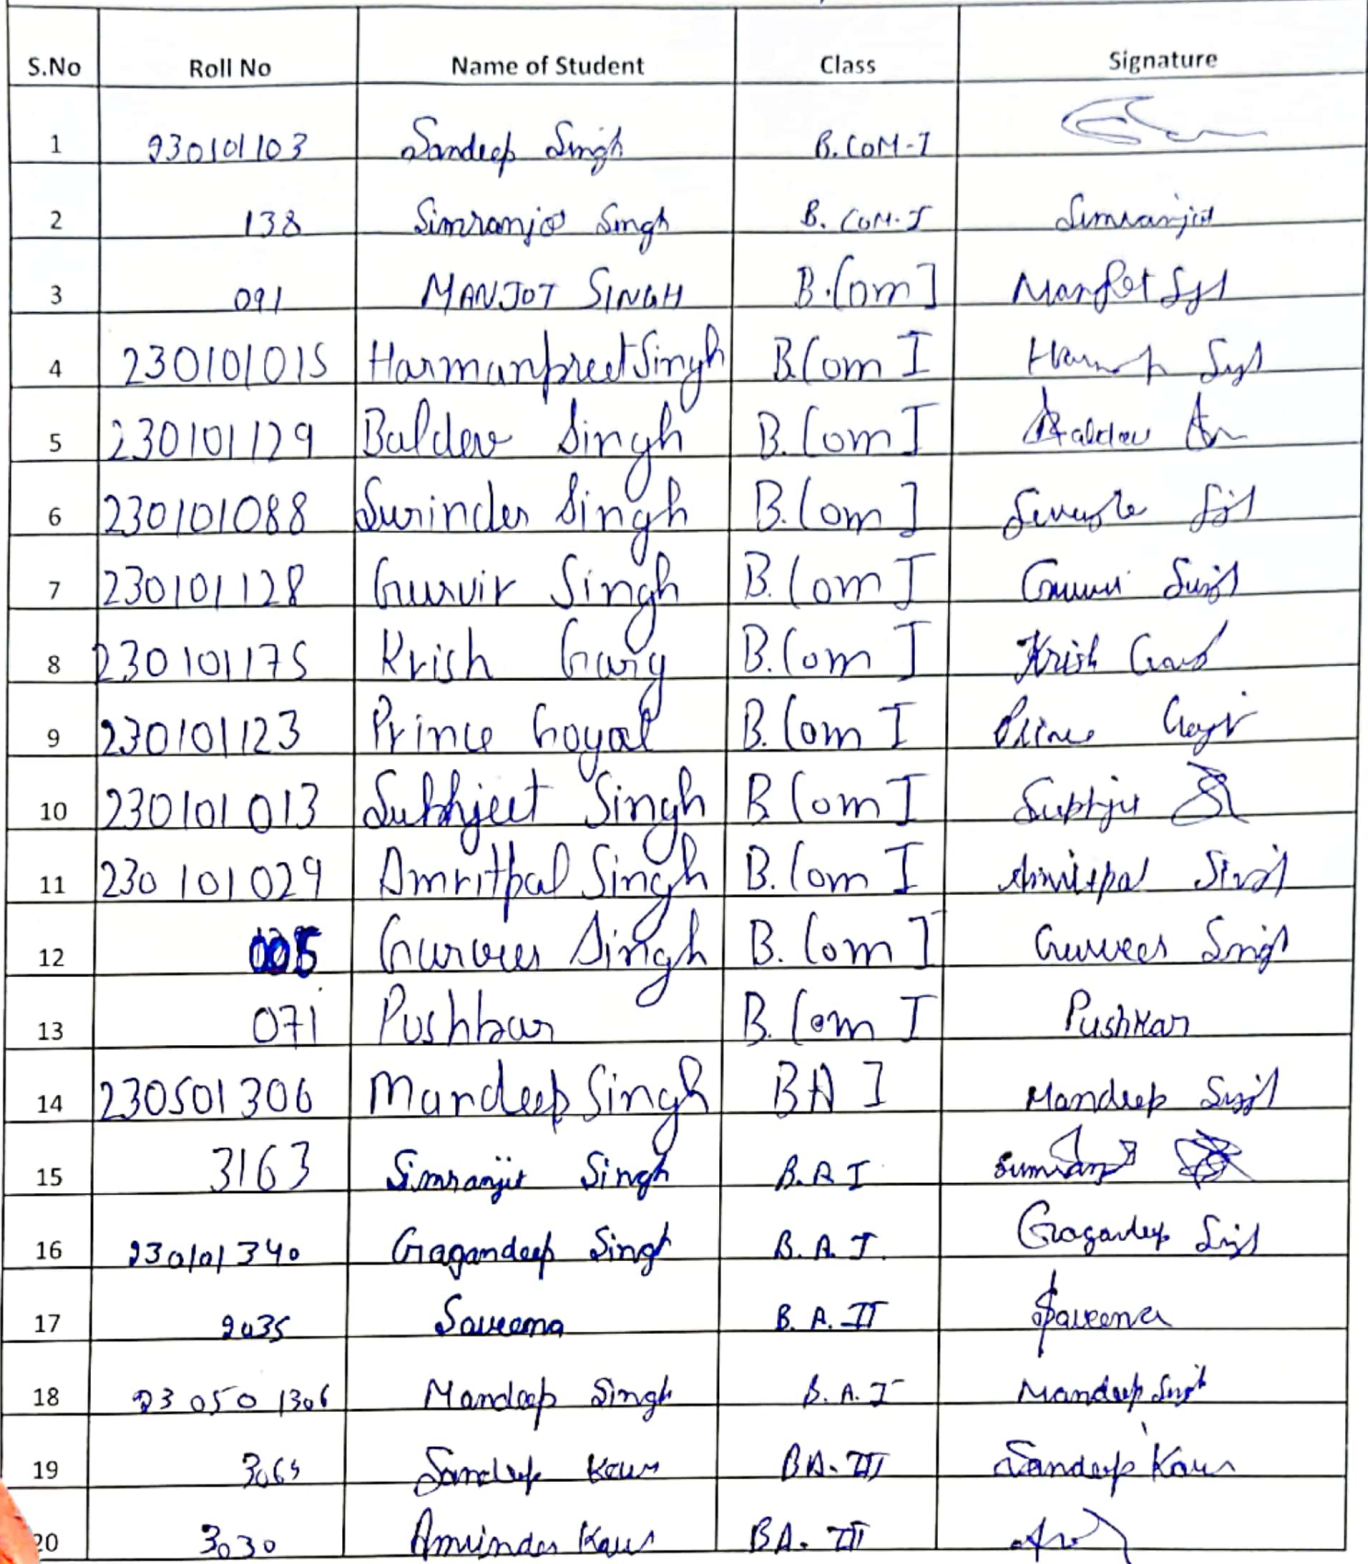 S.No Roll No Name of Student Class Signature
1 230101103 Sandeep Singh B.COM-I
2 138 Simranjot Singh B.COM-I Simranjot
3 091 MANJOT SINGH B.Com I Manjot
4 230101015 Harmanpreet Singh B.Com I
5 230101129 Baldev Singh B.Com I Baldev
6 230101088 Surinder Singh B.Com I
7 230101128 Gurvir Singh B.Com I
8 230101175 Krish Garg B.Com I Krish
9 230101123 Prince Goyal B.Com I Prince
10 230101013 Sukhjeet Singh B Com I
11 230101029 Amritpal Singh B.Com I Amritpal Singh
12 005 Gurveer Singh B.Com I Gurveer Singh
13 071 Pushkar B.Com I Pushkar
14 230501306 Mandeep Singh BA I Mandeep Singh
15 3163 Simranjit Singh B.A I
16 230101340 Gagandeep Singh B.A.I. Gagandeep Singh
17 2035 Saveena B.A.II Saveena
18 230501306 Mandeep Singh B.A.I Mandeep Singh
19 Sandeep Kaur BA.III Sandeep Kaur
20 3030 Kaur BA.III